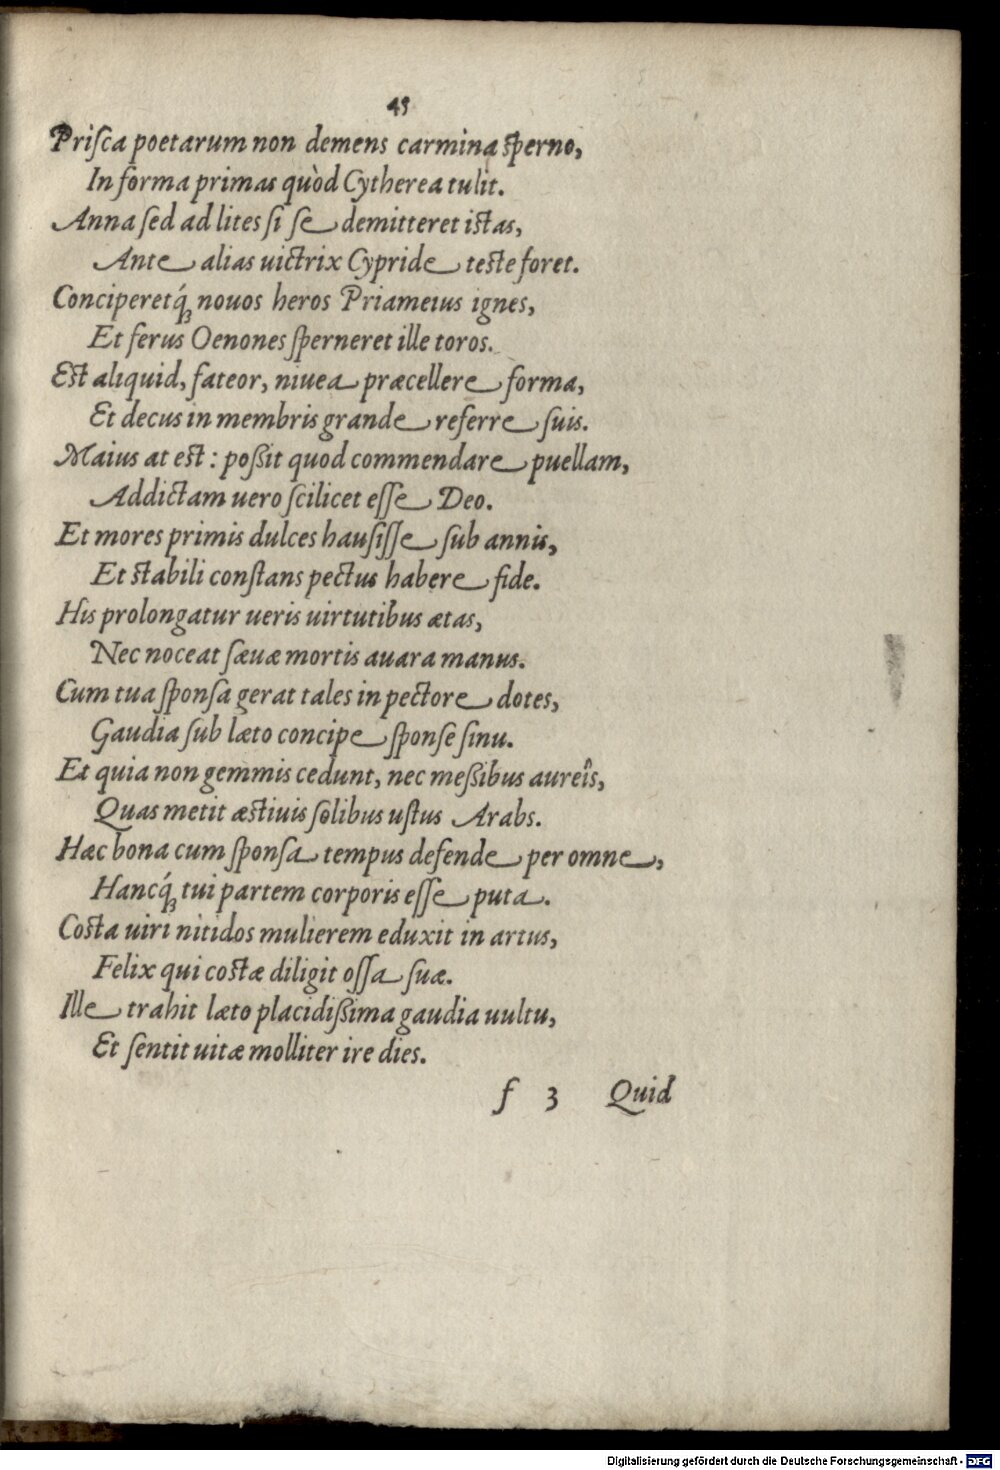 45
Priſca poetarum non demens carmina ſperno,
In forma primas quòd Cytherea tulit.
Anna ſed ad lites ſi ſe demitteret iſtas,
Ante alias uictrix Cypride teſte foret.
Conciperetq́; nouos heros Priameius ignes,
Et ferus Oenones ſperneret ille toros.
Eſt aliquid, fateor, niuea præcellere forma,
Et decus in membris grande referre ſuis.
Maius at eſt: poßit quod commendare puellam,
Addictam uero ſcilicet eſſe Deo.
Et mores primis dulces hauſiſſe ſub annis,
Et ſtabili conſtans pectus habere fide.
His prolongatur ueris uirtutibus ætas,
Nec noceat ſæuæ mortis auara manus.
Cum tua ſponſa gerat tales in pectore dotes,
Gaudia ſub læto concipe ſponſe ſinu.
Et quia non gemmis cedunt, nec meßibus aureîs,
Quas metit æſtiuis ſolibus uſtus Arabs.
Hæc bona cum ſponſa tempus defende per omne,
Hancq́; tui partem corporis eſſe puta.
Coſta uiri nitidos mulierem eduxit in artus,
Felix qui coſtæ diligit oſſa ſuæ.
Ille trahit læto placidißima gaudia uultu,
Et ſentit uitæ molliter ire dies.
f 3 Quid
Digitalisierung gefördert durch die Deutsche Forschungsgemeinschaft - DFG